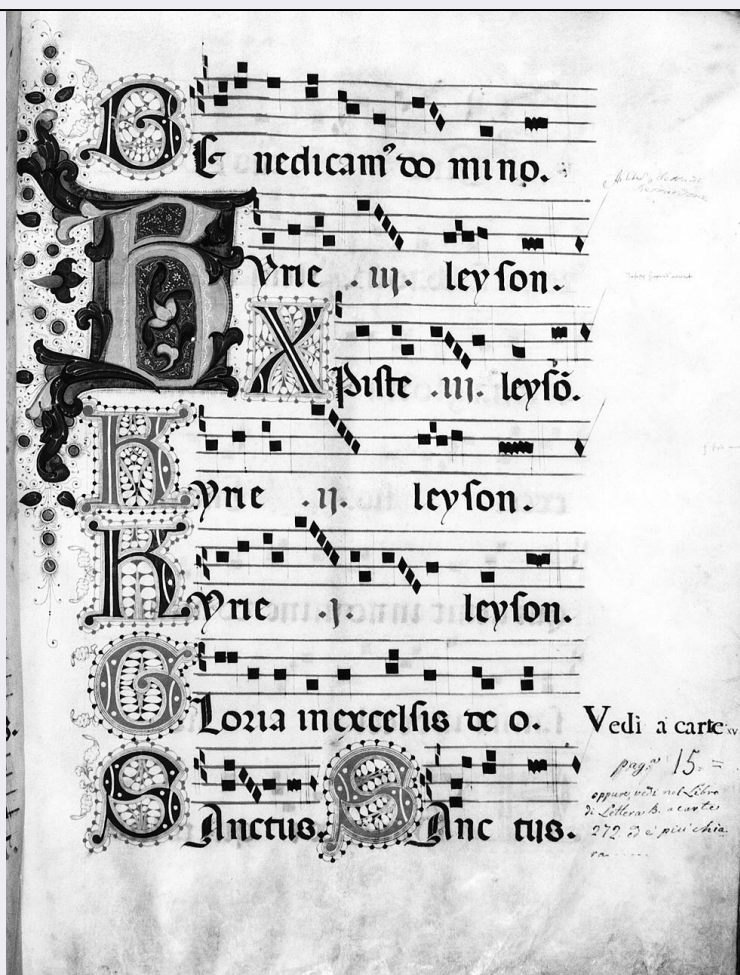 BEnedicam9 do mino.
Kyrie .iij. leyson.
Xpiste .iij. leysō.
Kyrie .ij. leyson.
Kyrie .j. leyson.
GLoria in excelsis de o.
SAnctus. SAnc tus.
Vedi a carte xv
pag.ª 15. =
oppure vedi nel Libro
di Lettera B. a carte
272 ed è più chia
ra